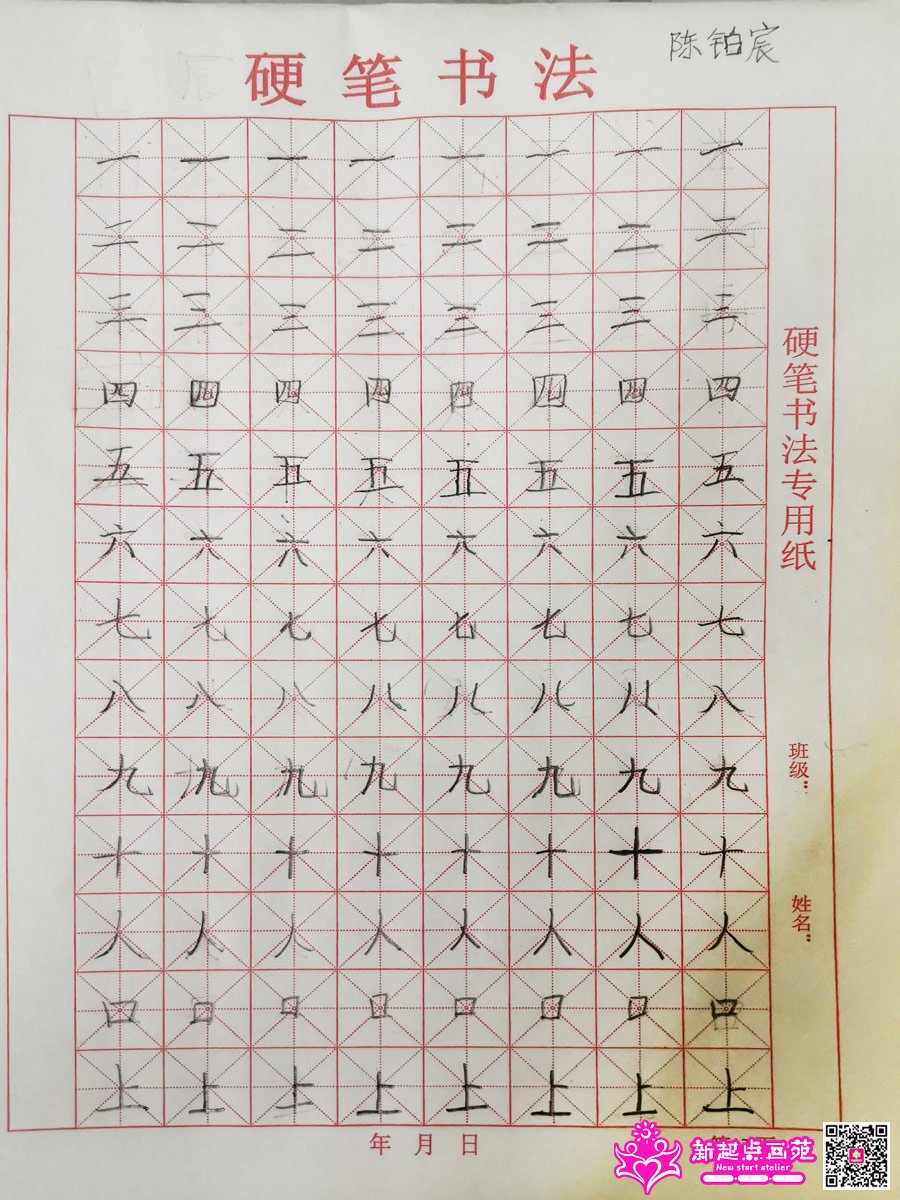 陈铂宸
硬笔书法
一一一一一一一一
二二二二二二二二
三三三三三三三三
四四四四四四四四
五五五五五五五五
六六六六六六六六
七七七七七七七七
八八八八八八八八
九九九九九九九九
十十十十十十十十
人人人人人人人人
口口口口口口口口
上上上上上上上上
硬笔书法专用纸
班级:
姓名:
年 月 日
新起点画苑
New start atelier